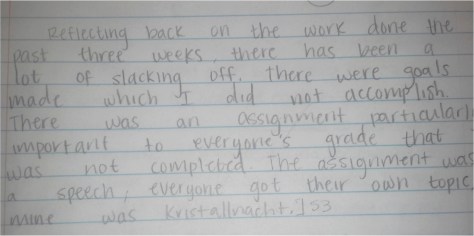 Reflecting back on the work done the
past three weeks, there has been a
lot of slacking off. There were goals
made which I did not accomplish.
There was an assignment particularl
important to everyone's grade that
was not completed The assignment was
a speech, everyone got their own topic
mine was Kristallnacht.